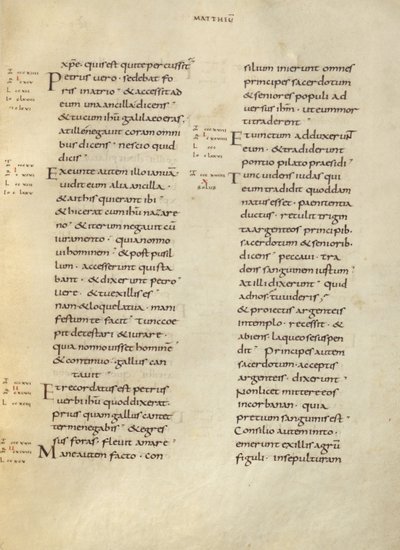 MATTHEU̅
xp̅e. quis est qui te percussit
Petrus vero. sedebat fo
ris in atrio. & accessit ad
eum una ancilla dicens
& tu cum ih̅u galilaeo eras.
at ille negavit coram omni
bus dicens. nescio quid
dicis
Exeunte autem illo ianua
vidit eum alia ancilla.
& ait his qui erant ibi
& hic erat cum ih̅u nazare
no. & iterum negavit cu̅
iuramento. quia non no
vi hominem. & post pusil
lum. accesserunt qui sta
bant. & dixerunt petro
vere. & tu ex illis es
nam & loquela tua. mani
festum te facit. tunc coe
pit detestari & iurare.
quia non novisset homine̅
& continuo. gallus can
tavit
Et recordatus est petrus
verbi ih̅u quod dixerat.
prius quam gallus cantet
ter me negabis. & egres
sus foras. flevit amare
Mane autem facto. con
silium inierunt omnes
principes sacerdotum
& seniores populi ad
versus ih̅m. ut eum mor
ti traderent
Et vinctum adduxerun̅t
eum. & tradiderunt
pontio pilato praesidi
Tunc videns iudas qui
eum tradidit quod dam
natus esset. paenitentia
ductus. retulit trigin
ta argenteos principib.
sacerdotum & seniorib.
dicens. peccavi. tra
dens sanguinem iustum
at illi dixerunt. quid
ad nos. tu videris.
& proiectis argenteis
in templo. recessit. &
abiens. laqueo se suspen
dit. Principes autem
sacerdotum. acceptis
argenteis. dixerunt.
Non licet mittere eos
in corbanan. quia
pretium sanguinis est
Consilio autem inito.
emerunt ex illis agru̅
figuli. in sepulturam